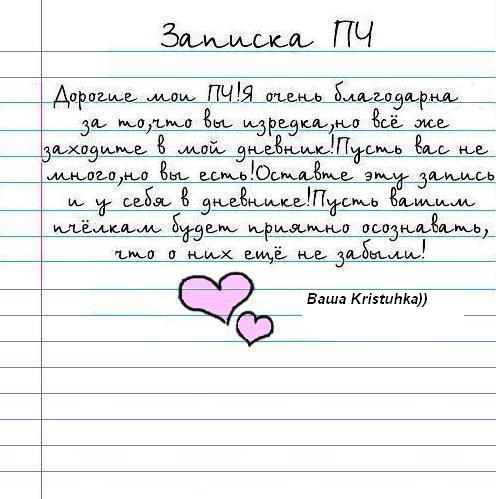 Записка ПЧ
Дорогие мои ПЧ!Я очень благодарна
за то,что вы изредка,но всё же
заходите в мой дневник!Пусть вас не
много,но вы есть!Оставте эту запись
и у себя в дневнике!Пусть вашим
пчёлкам будет приятно осознавать,
что о них ещё не забыли!
Ваша Kristuhka))